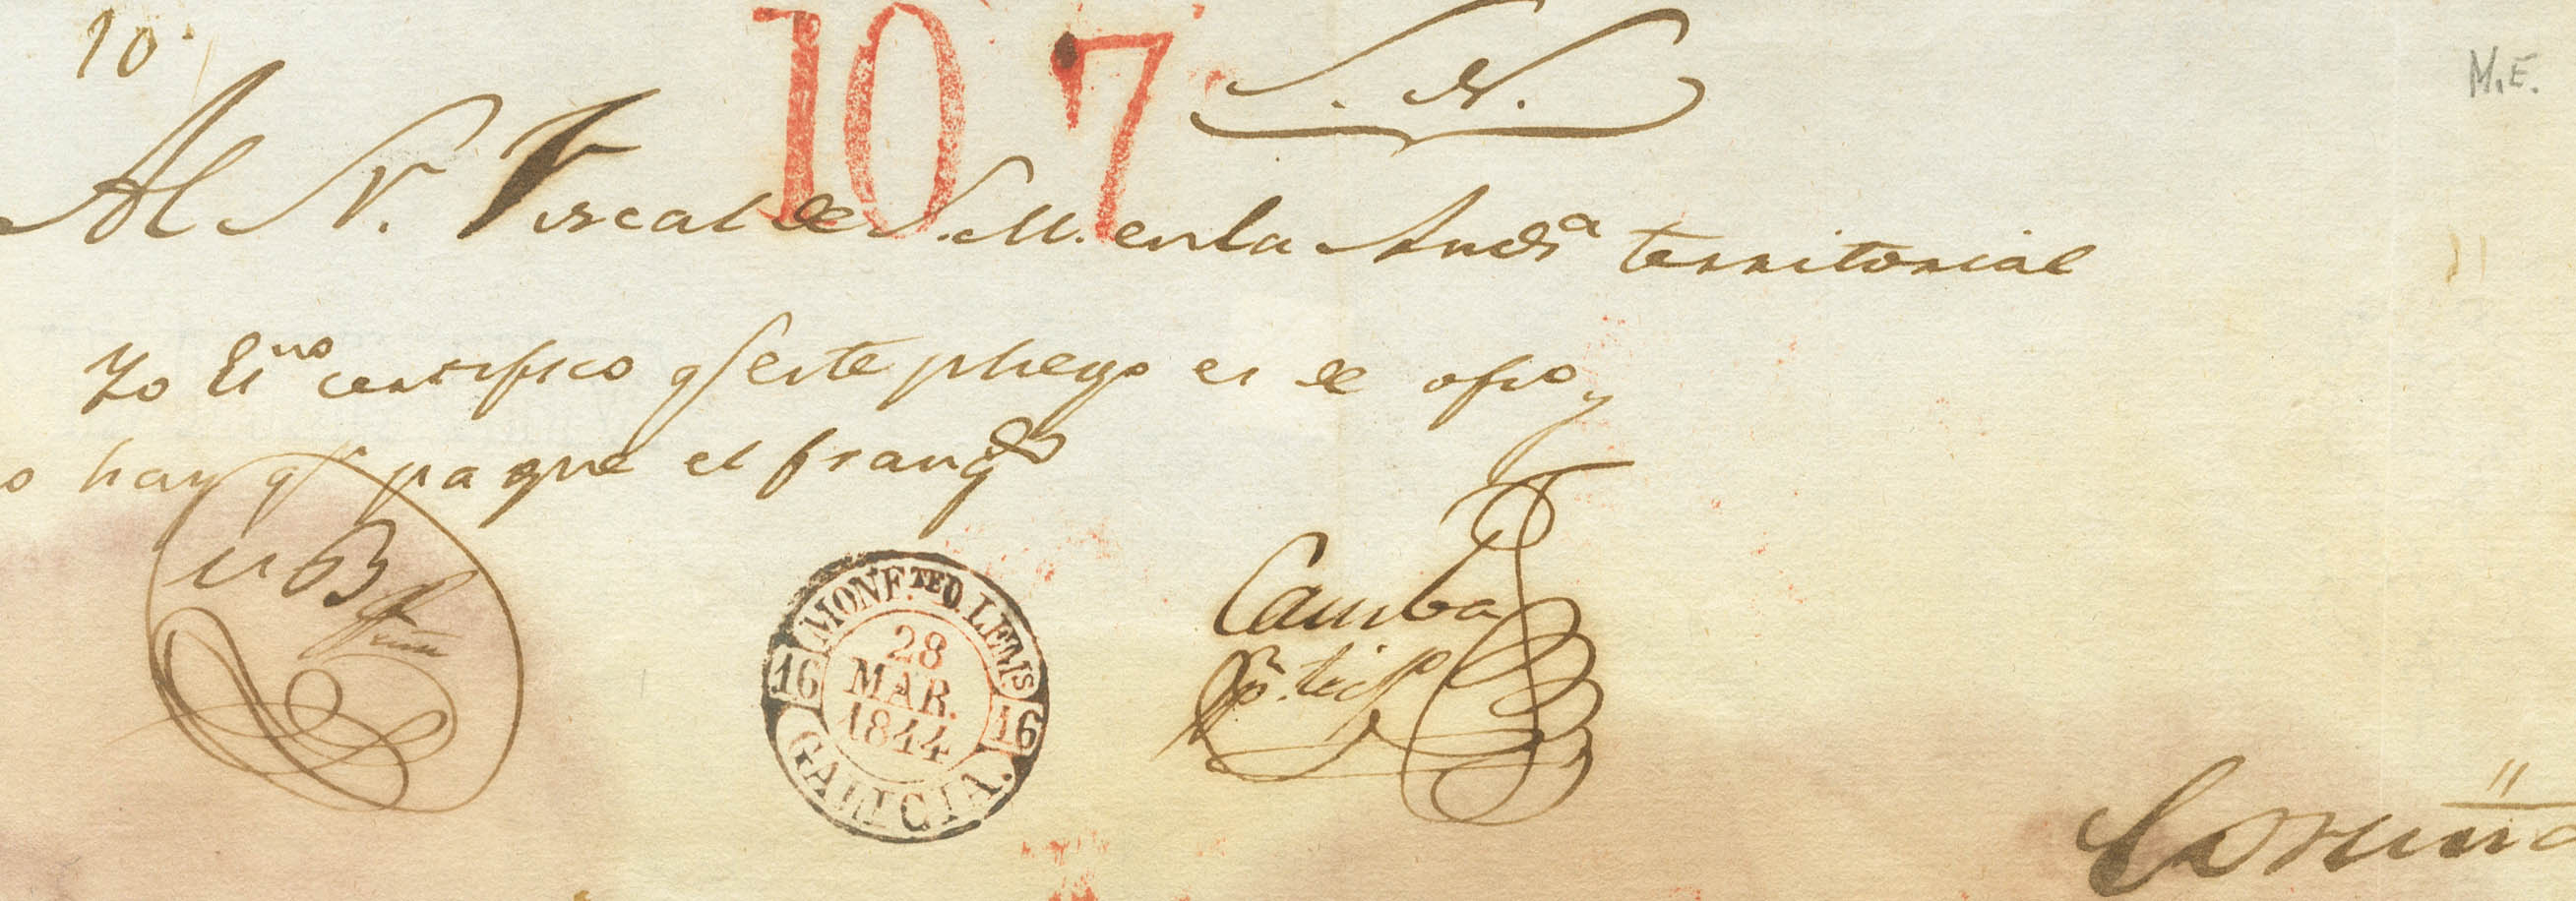 10
10 7
S. N.
M.E.
Al S. Fiscal de S.M. en la Auda territorial
Yo Esno certifico q este pliego es de ofio y
o hay q pague el franqo
MONF.TE D LEMS
16 28 MAR. 1844 16
GALICIA.
Camba
Coruña